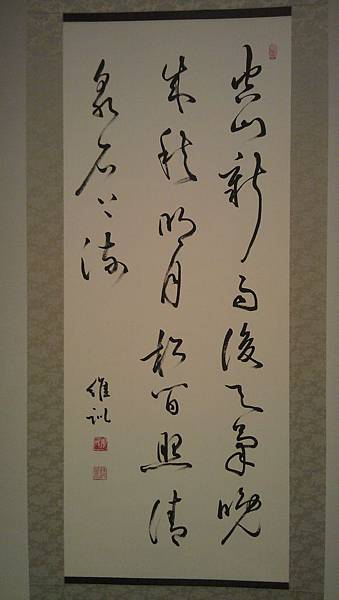 空山新雨後天氣晚
來秋明月松間照清
泉石上流
維訓